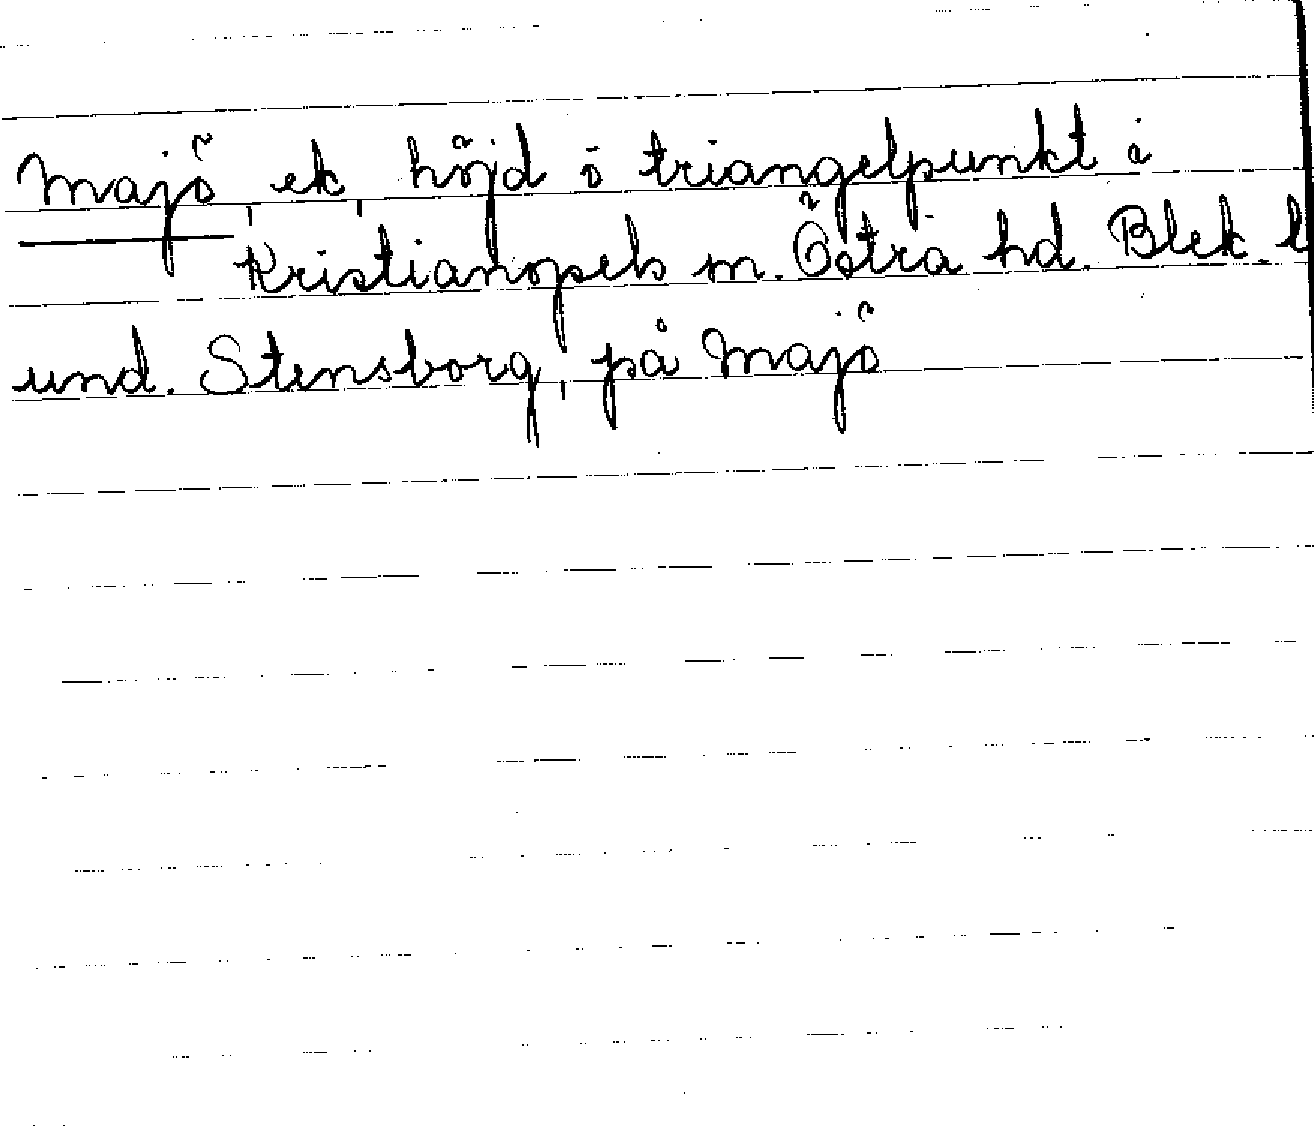 Majö, ek, höjd ö triangelpunkt i
Kristianopels sn. Östra hd. Blek. l
und. Stensborg, på Majö